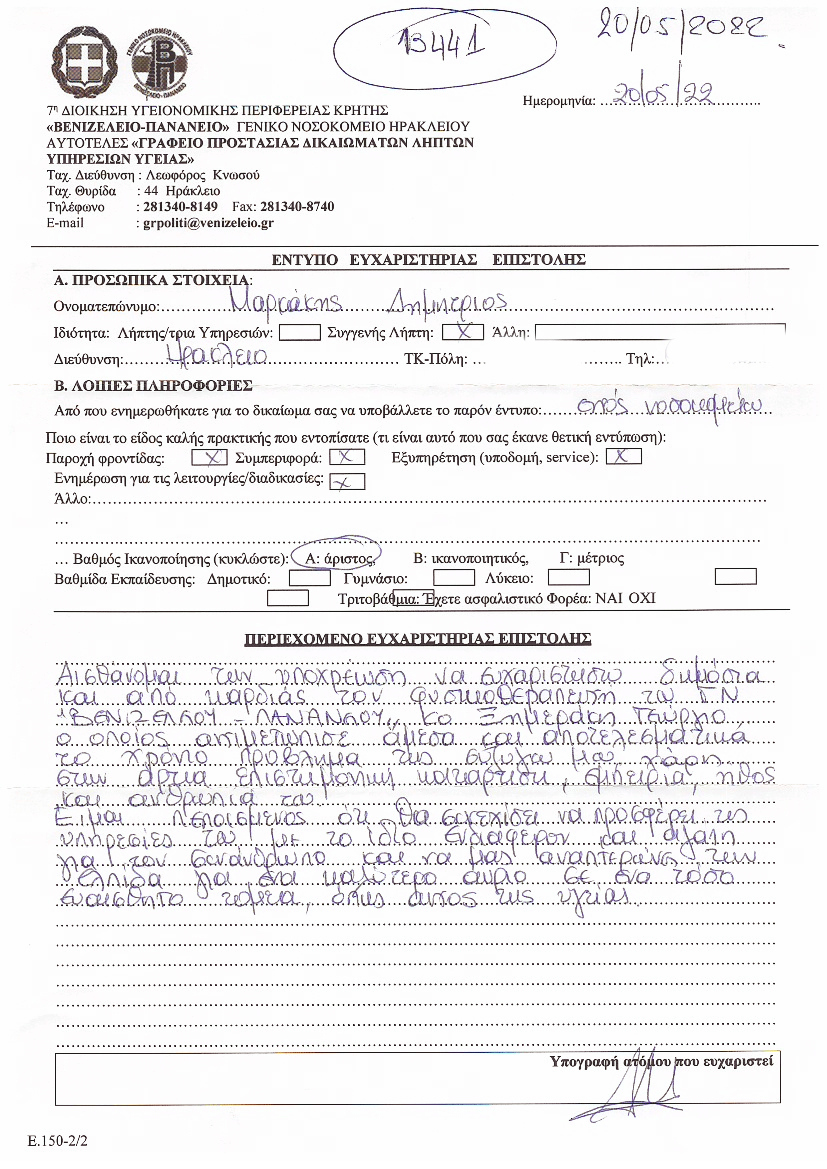 13441
20/05/2022
Ημερομηνία: ...20/05/22...
7η ΔΙΟΙΚΗΣΗ ΥΓΕΙΟΝΟΜΙΚΗΣ ΠΕΡΙΦΕΡΕΙΑΣ ΚΡΗΤΗΣ
«ΒΕΝΙΖΕΛΕΙΟ-ΠΑΝΑΝΕΙΟ» ΓΕΝΙΚΟ ΝΟΣΟΚΟΜΕΙΟ ΗΡΑΚΛΕΙΟΥ
ΑΥΤΟΤΕΛΕΣ «ΓΡΑΦΕΙΟ ΠΡΟΣΤΑΣΙΑΣ ΔΙΚΑΙΩΜΑΤΩΝ ΛΗΠΤΩΝ
ΥΠΗΡΕΣΙΩΝ ΥΓΕΙΑΣ»
Ταχ. Διεύθυνση : Λεωφόρος Κνωσού
Ταχ. Θυρίδα : 44 Ηράκλειο
Τηλέφωνο : 281340-8149 Fax: 281340-8740
E-mail : grpoliti@venizeleio.gr
ΕΝΤΥΠΟ ΕΥΧΑΡΙΣΤΗΡΙΑΣ ΕΠΙΣΤΟΛΗΣ
Α. ΠΡΟΣΩΠΙΚΑ ΣΤΟΙΧΕΙΑ:
Ονοματεπώνυμο: Δημητριος
Ιδιότητα: Λήπτης/τρια Υπηρεσιών: Συγγενής Λήπτη: X Άλλη:
Διεύθυνση: Ηρακλειο ΤΚ-Πόλη: ... Τηλ:
Β. ΛΟΙΠΕΣ ΠΛΗΡΟΦΟΡΙΕΣ
Από που ενημερωθήκατε για το δικαίωμα σας να υποβάλλετε το παρόν έντυπο: νοσοκομειου
Ποιο είναι το είδος καλής πρακτικής που εντοπίσατε (τι είναι αυτό που σας έκανε θετική εντύπωση):
Παροχή φροντίδας: X Συμπεριφορά: X Εξυπηρέτηση (υποδομή, service): X
Ενημέρωση για τις λειτουργίες/διαδικασίες: X
Άλλο:
...
... Βαθμός Ικανοποίησης (κυκλώστε): Α: άριστος, Β: ικανοποιητικός, Γ: μέτριος
Βαθμίδα Εκπαίδευσης: Δημοτικό: Γυμνάσιο: Λύκειο:
Τριτοβάθμια: Έχετε ασφαλιστικό Φορέα: ΝΑΙ ΟΧΙ
ΠΕΡΙΕΧΟΜΕΝΟ ΕΥΧΑΡΙΣΤΗΡΙΑΣ ΕΠΙΣΤΟΛΗΣ
Αισθάνομαι των υποχρέωση να ευχαριστισω δημόσια
και από καρδιάς τον φυσικοθεραπευτη του ΓΝ
"ΒΕΝΙΖΕΛΛΟΥ - ΠΑΝΑΝΛΟΥ", κο Γιωργο,
ο οποίος αντιμετώπισε άμεσα και αποτελεσματικα
το χρόνιο πρόβλημα της συζυγου μου, χάρη
στην άρτια επιστημονικη καταρτιση, εμπειρια, ηθος
και ανθρωπια του!
Ειμαι πεπεισμενος ότι θα συνεχισει να προσφερει τις
υπηρεσίες του με το ίδιο ενδιαφερον και αγαπη
για τον συνάνθρωπο και να μας αναπτερώνει των
ελπιδα για ένα καλυτερο αυριο σε ένα τοσο
ευαισθητο τομεα, όπως αυτος της υγειας.
Υπογραφή ατόμου που ευχαριστεί
Ε.150-2/2